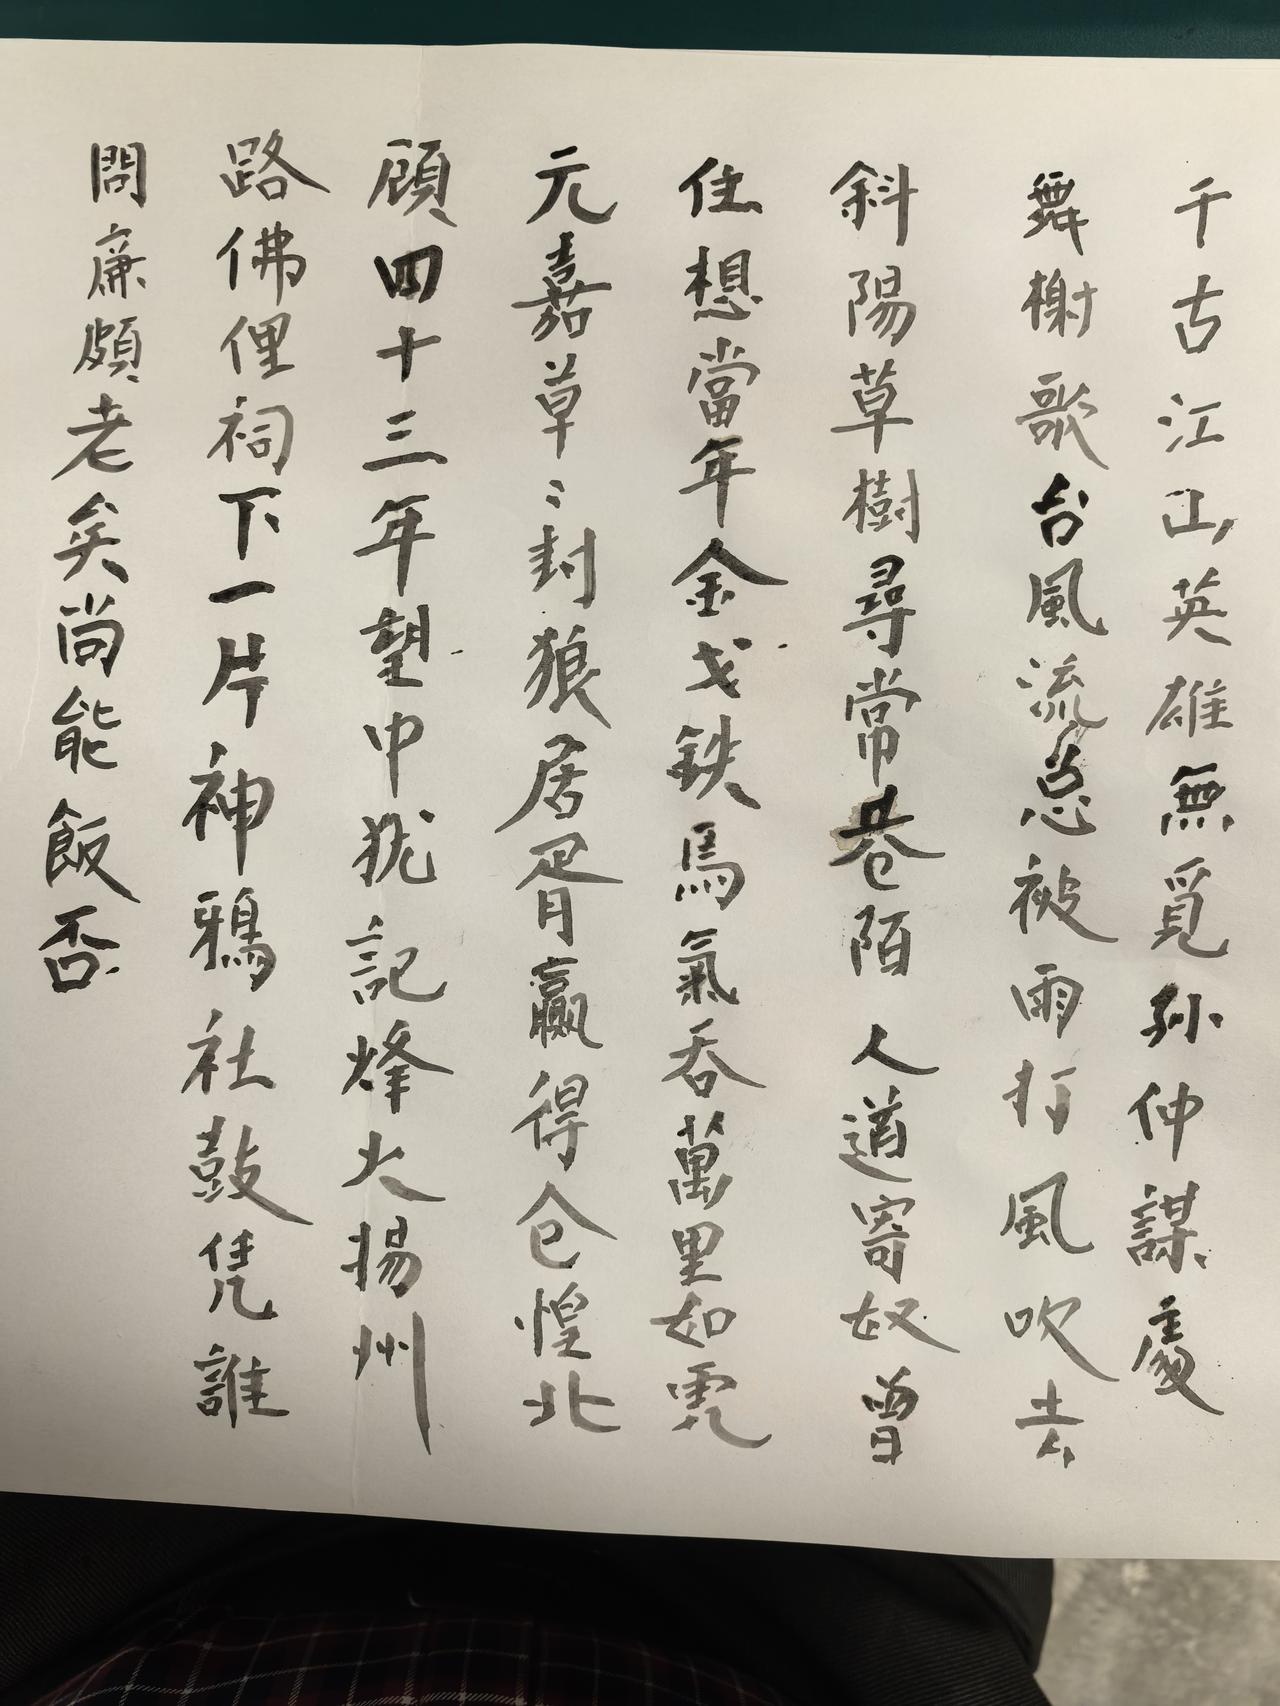 千古江山英雄無覓孫仲謀處
舞榭歌台風流总被雨打風吹去
斜陽草樹尋常巷陌人道寄奴曾
住想當年金戈鉄馬氣吞萬里如虎
元嘉草〻封狼居胥贏得仓惶北
顧四十三年望中犹記烽火揚州
路佛狸祠下一片神鴉社鼓凭誰
問廉頗老矣尚能飯否